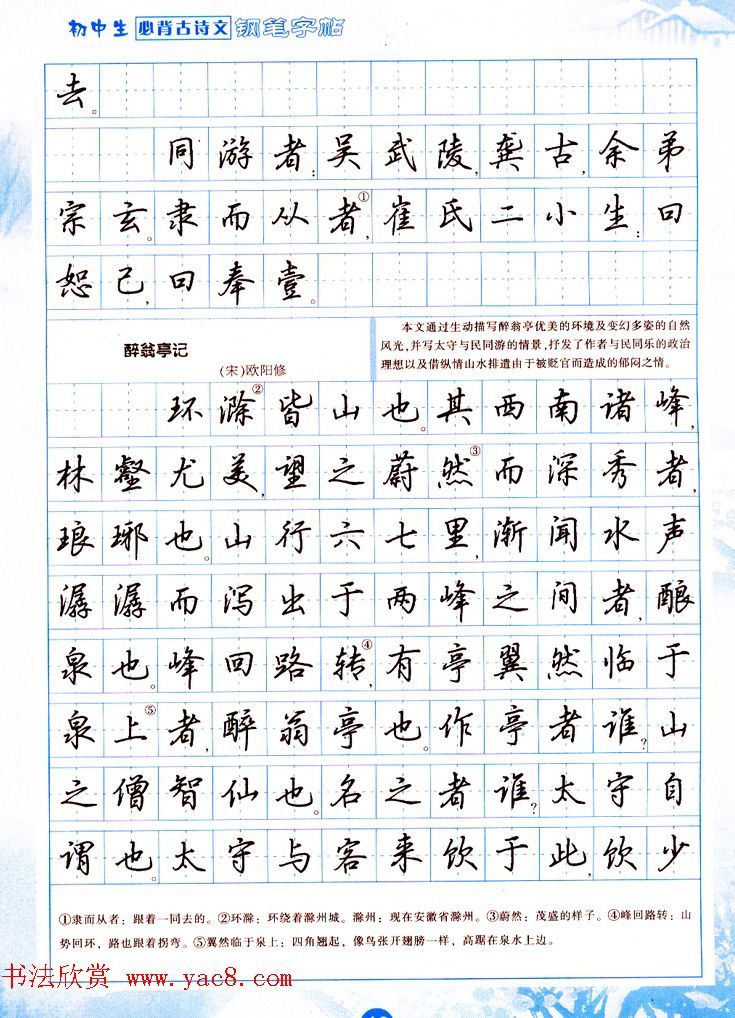 初中生 必背古诗文 钢笔字帖
去。
同游者:吴武陵,龚古,余弟
宗玄。隶而从者①,崔氏二小生:曰
恕己,曰奉壹。
醉翁亭记
(宋)欧阳修
本文通过生动描写醉翁亭优美的环境及变幻多姿的自然
风光,并写太守与民同游的情景,抒发了作者与民同乐的政治
理想以及借纵情山水排遣由于被贬官而造成的郁闷之情。
环滁②皆山也。其西南诸峰,
林壑尤美,望之蔚然③而深秀者,
琅琊也。山行六七里,渐闻水声
潺潺而泻出于两峰之间者,酿
泉也。峰回路转④,有亭翼然临于
泉上⑤者,醉翁亭也。作亭者谁?山
之僧智仙也。名之者谁?太守自
谓也。太守与客来饮于此,饮少
①隶而从者:跟着一同去的。②环滁:环绕着滁州城。滁州:现在安徽省滁州。③蔚然:茂盛的样子。④峰回路转:山
势回环,路也跟着拐弯。⑤翼然临于泉上:四角翘起,像鸟张开翅膀一样,高踞在泉水上边。
书法欣赏 www.yac8.com